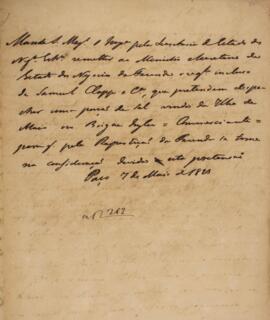 Manda S. Mage. o Imper. pela Secretaria de Estado dos
Neg.os Estr.os remetter ao Ministro e Secretario de
Estado dos Negocios da Fazenda o req.to incluso
de Samuel Clapp e C.a, que pretendem despa-
char uma porção de sal vindo da Ilha de
Maio no Brigue Inglez = Commerciante =
para q. pela Repartição da Fazenda se tome
na consideração devida esta pretensão
Paço 7 de Maio de 18